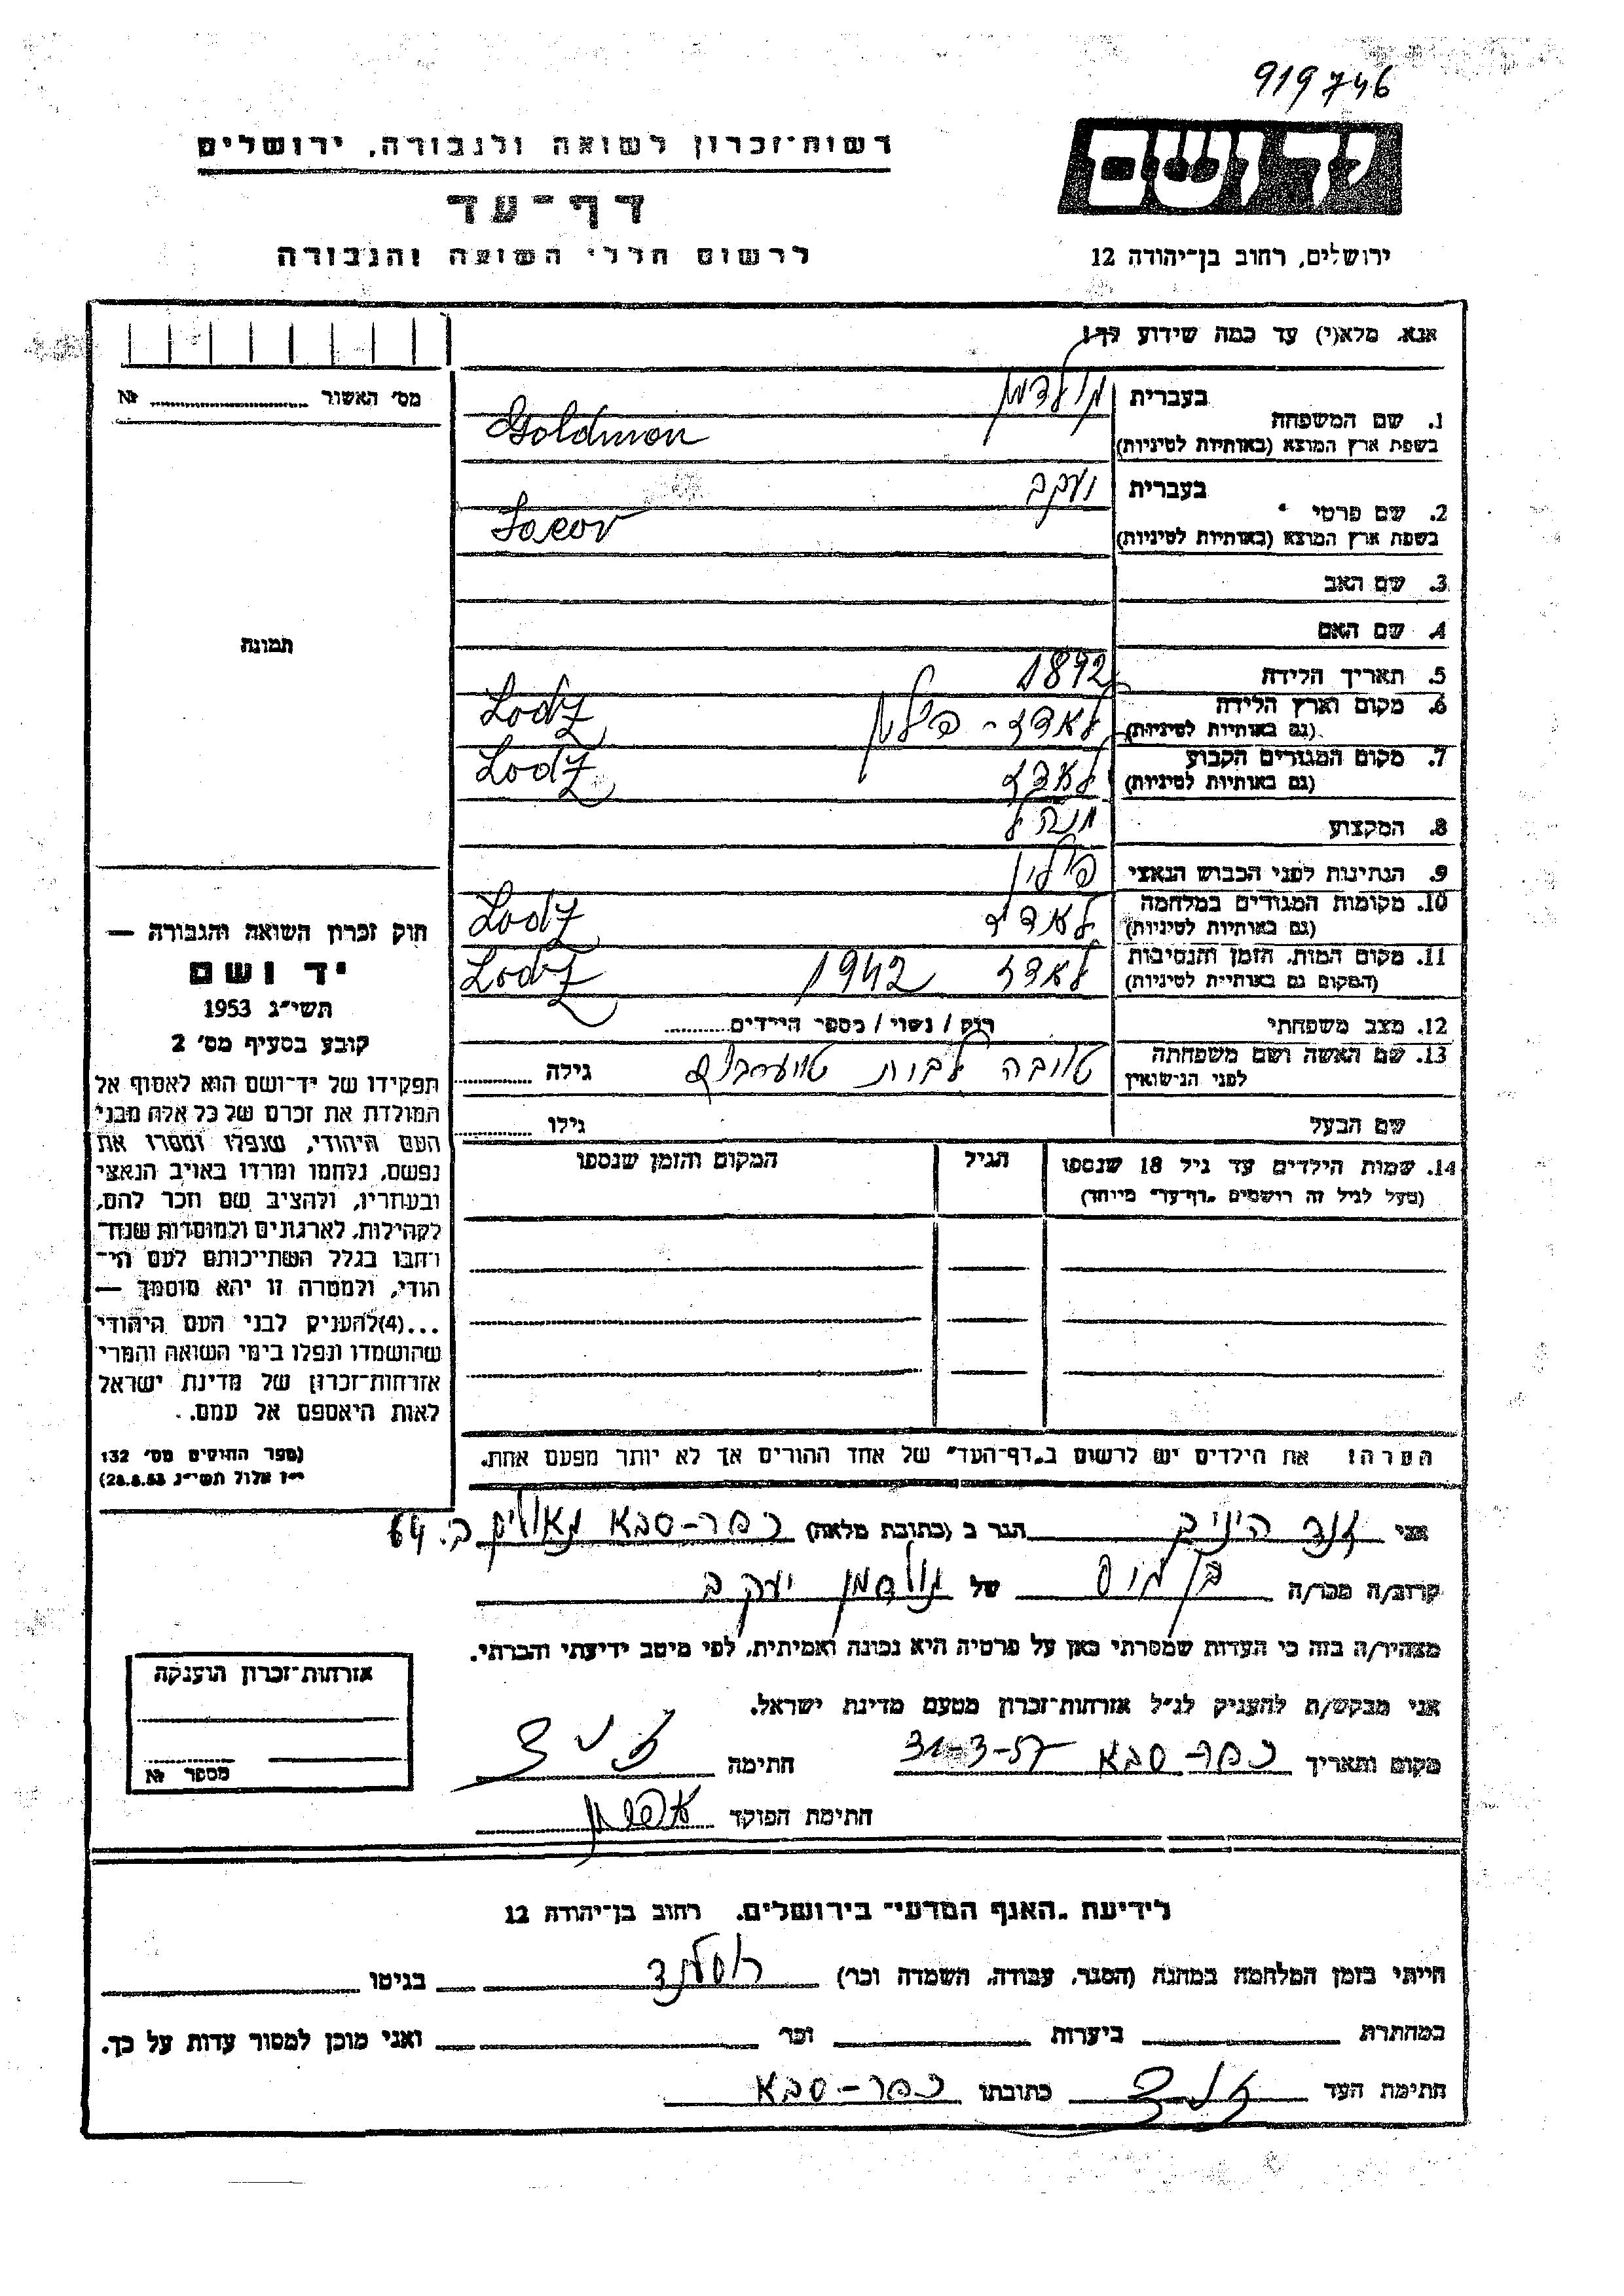 919746
רשות־זכרון לשואה ולגבורה, ירושלים
יד ושם
דף־עד
לרשום חללי השואה והגבורה
ירושלים, רחוב בן־יהודה 12
אנא, מלא(י) עד כמה שידוע לך!
מס׳ האשור № 
1. שם המשפחה
בעברית גולדמן
בשפת ארץ המוצא (באותיות לטיניות) Goldman
2. שם פרטי
בעברית יעקב
בשפת ארץ המוצא (באותיות לטיניות)
3. שם האב
4. שם האם
5. תאריך הלידה 1892
6. מקום וארץ הלידה לאדז - פילין Lodz
(גם באותיות לטיניות)
7. מקום המגורים הקבוע לאדז Lodz
(גם באותיות לטיניות)
8. המקצוע
9. הנתינות לפני הכבוש הנאצי פילין
10. מקומות המגורים במלחמה לאדז Lodz
(גם באותיות לטיניות)
11. מקום המות, הזמן והנסיבות לאדז 1942 Lodz
(המקום גם באותיות לטיניות)
12. מצב משפחתי רוק / נשוי / מספר הילדים
13. שם האשה ושם משפחתה טויבה לבית גילה
לפני הנישואין
שם הבעל גילו
14. שמות הילדים עד גיל 18 שנספו הגיל המקום והזמן שנספו
(מעל לגיל זה רושמים „דף־עד״ מיוחד)
הערה! את הילדים יש לרשום ב„דף־העד״ של אחד ההורים אך לא יותר מפעם אחת.
תמונה
חוק זכרון השואה והגבורה —
יד ושם
תשי״ג 1953
קובע בסעיף מס׳ 2
תפקידו של יד־ושם הוא לאסוף אל
המולדת את זכרם של כל אלה מבני
העם היהודי, שנפלו ומסרו את
נפשם, נלחמו ומרדו באויב הנאצי
ובעוזריו, ולהציב שם וזכר להם,
לקהילות, לארגונים ולמוסדות שנח־
רחבו בגלל השתייכותם לעם הי־
הודי, ולמטרה זו יהא מוסמך —
...(4)להעניק לבני העם היהודי
שהושמדו ונפלו בימי השואה והמרי
אזרחות־זכרון של מדינת ישראל
לאות היאספם אל עמם..
(ספר החוקים מס׳ 132
י״ז אלול תשי״ג 28.8.53)
אני זנד הגר ב (כתובת מלאה) כפר-סבא ב. 64
קרוב/ה מכר/ה בן של גולדמן יעקב
מצהיר/ה בזה כי העדות שמסרתי כאן על פרטיה היא נכונה ואמיתית, לפי מיטב ידיעתי והכרתי.
אני מבקש/ת להעניק לנ״ל אזרחות־זכרון מטעם מדינת ישראל.
מקום ותאריך כפר-סבא 31-3-57 חתימה
חתימת הפוקד
אזרחות־זכרון הוענקה
מספר №
לידיעת „האגף המדעי״ בירושלים, רחוב בן־יהודה 12
הייתי בזמן המלחמה במחנה (הסגר, עבודה, השמדה וכו׳) רוסלנד בגיטו
במחתרת ביערות וכו׳ ואני מוכן למסור עדות על כך.
חתימת העד כתובתו כפר-סבא